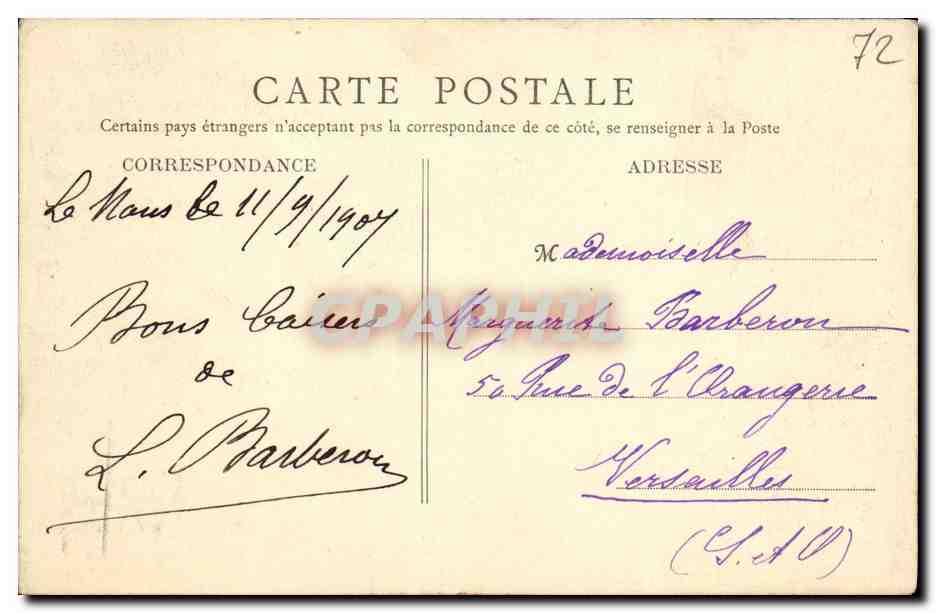 72
CARTE POSTALE
Certains pays étrangers n'acceptent pas la correspondance de ce côté, se renseigner à la Poste
CORRESPONDANCE
Le Mans le 11/9/1907
Bons baisers
de
L. Barberon
ADRESSE
Mademoiselle
Marguerite Barberon
50 Rue de l'Orangerie
Versailles
(S. et O)
CPAPHIL